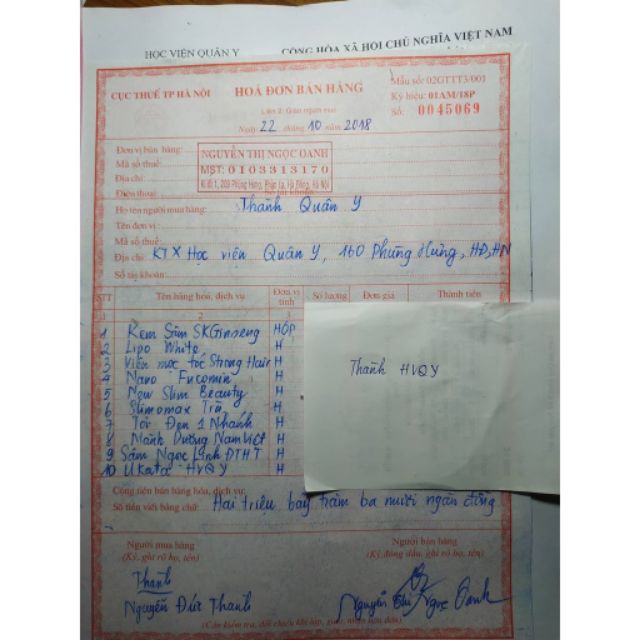 HỌC VIỆN QUÂN Y
CỘNG HÒA XÃ HỘI CHỦ NGHĨA VIỆT NAM
CỤC THUẾ TP HÀ NỘI
HOÁ ĐƠN BÁN HÀNG
Mẫu số: 02GTTT3/001
Liên 2: Giao người mua
Ký hiệu: 01AM/18P
Ngày 22 tháng 10 năm 2018
Số: 0045069
Đơn vị bán hàng:
NGUYỄN THỊ NGỌC OANH
Mã số thuế:
MST: 0103313170
Địa chỉ:
Ki ốt 1, 209 Phùng Hưng, Phúc La, Hà Đông, Hà Nội
Điện thoại:
Số tài khoản:
Họ tên người mua hàng: Thành Quân Y
Tên đơn vị:
Mã số thuế:
Địa chỉ: KTX Học viện Quân Y, 160 Phùng Hưng, HĐ, HN
Số tài khoản:
STT Tên hàng hóa, dịch vụ Đơn vị tính Số lượng Đơn giá Thành tiền
1 2 3
1 Kem Sâm SKGinseng HỘP
2 Lipo White H
3 Viên mọc tóc Strong Hair H
4 Nano Fucomin H
5 New Slim Beauty H
6 Slimomax Trà H
7 Tỏi Đen 1 Nhánh H
8 Mãnh Dương Nam Việt H
9 Sâm Ngọc Linh ĐTHT H
10 Ukata HVQY H
Thành HVQY
Cộng tiền bán hàng hóa, dịch vụ:
Số tiền viết bằng chữ: Hai triệu bảy trăm ba mươi ngàn đồng
Người mua hàng
Người bán hàng
(Ký, ghi rõ họ, tên)
(Ký, đóng dấu, ghi rõ họ, tên)
Thành
Nguyễn Đức Thành
Nguyễn Thị Ngọc Oanh
(Cần kiểm tra, đối chiếu khi lập, giao, nhận hóa đơn)